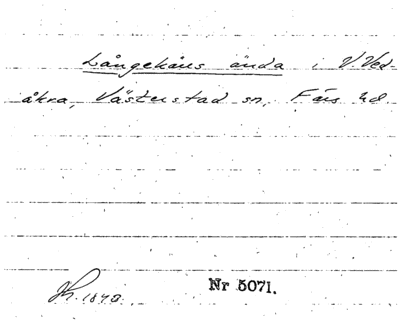 Långekärs ända i V. Ved-
åkra, Västerstad sn, Färs hd
1840.
Nr 5071.